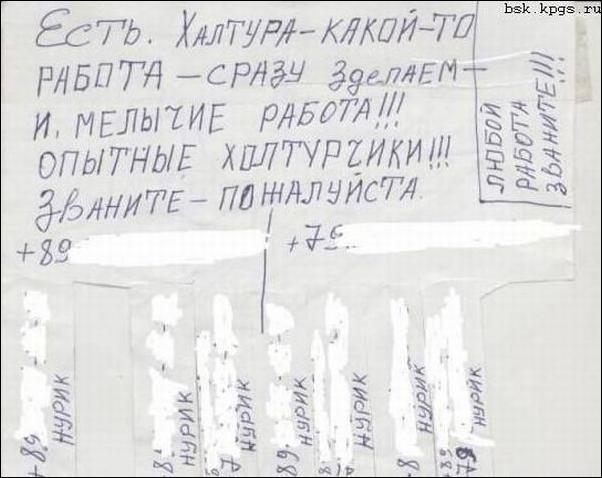 bsk.kpgs.ru
ЕСТЬ. ХАЛТУРА-КАКОЙ-ТО
РАБОТА - СРАЗУ ЗДЕЛАЕМ -
И, МЕЛЫЧИЕ РАБОТА!!!
ОПЫТНЫЕ ХОЛТУРЧИКИ!!!
ЗВАНИТЕ - ПОЖАЛУЙСТА.
ЛЮБОЙ
РАБОТА
ЗВАНИТЕ!!!
+89
+79
+89
НУРИК
НУРИК
НУРИК
НУРИК
НУРИК
НУРИК
НУРИК